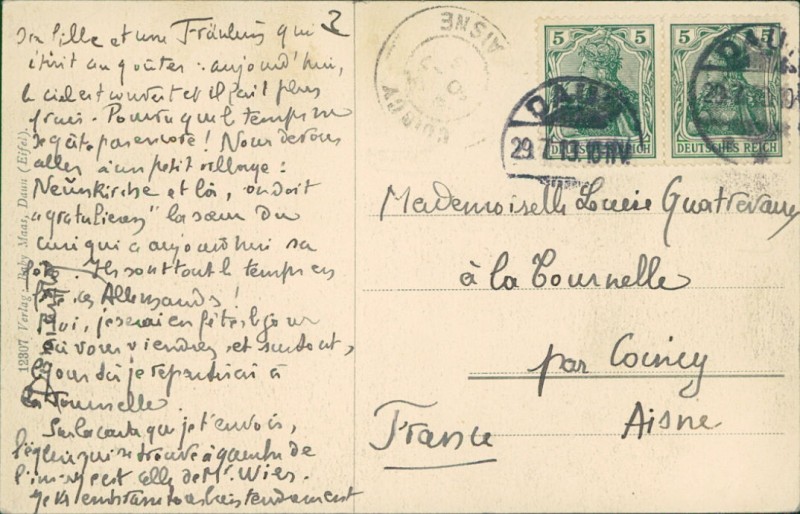 2
sa fille et une Fräulein qui
était au goûter. aujourd'hui,
le ciel est couvert et il fait plus
frais. Pourvu que le temps ne
se gâte pas encore! Nous devons
aller à un petit village:
Neunkirche et là, on doit
"gratulieren" la sœur du
curé qui a aujourd'hui sa
fête. Ils sont tout le temps en
fête ces Allemands!
Moi, je serai en fête le jour
où vous viendrez, et surtout,
le jour où je repartirai à
la Tournelle.
Sur la carte que je t'envois,
l'église qui se trouve à gauche de
l'image est celle de Mr. Wies.
Je vous embrasse tous bien tendrement
12307 Verlag: Baby Maas, Daun (Eifel).
COINCY
AISNE
5 5
DEUTSCHES REICH
DAUN
29.7.13.10-11V.
5
DEUTSCHES REICH
DAUN
29.7.13.10-
Mademoiselle Louise Quatrevaux
à la Tournelle
par Coincy
Aisne
France